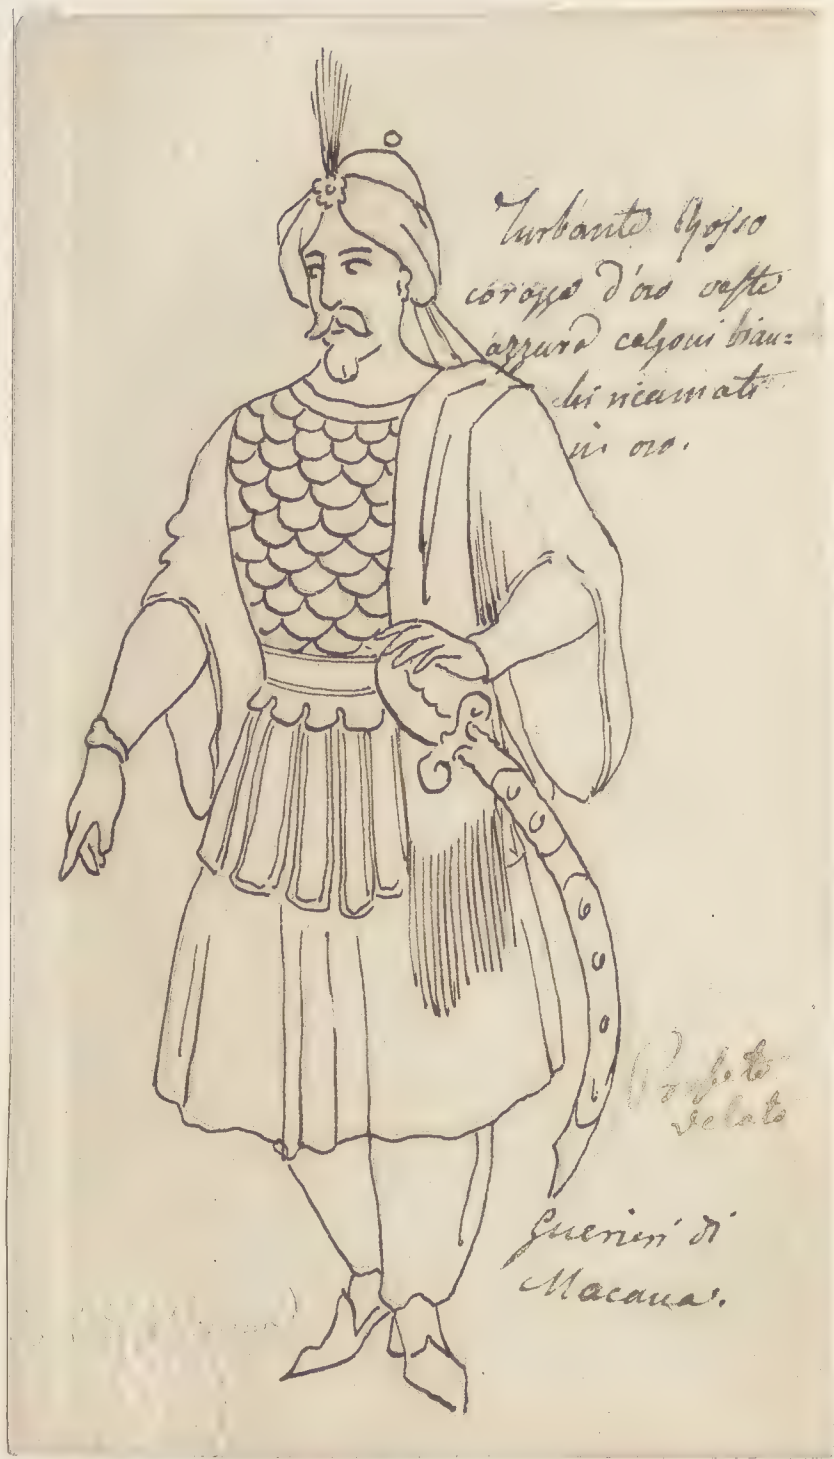 Turbante Rosso
corazza d'oro veste
azzura calzoni bian=
chi ricamati
in oro.
Profeta
velato
Guerieri di
Macana.